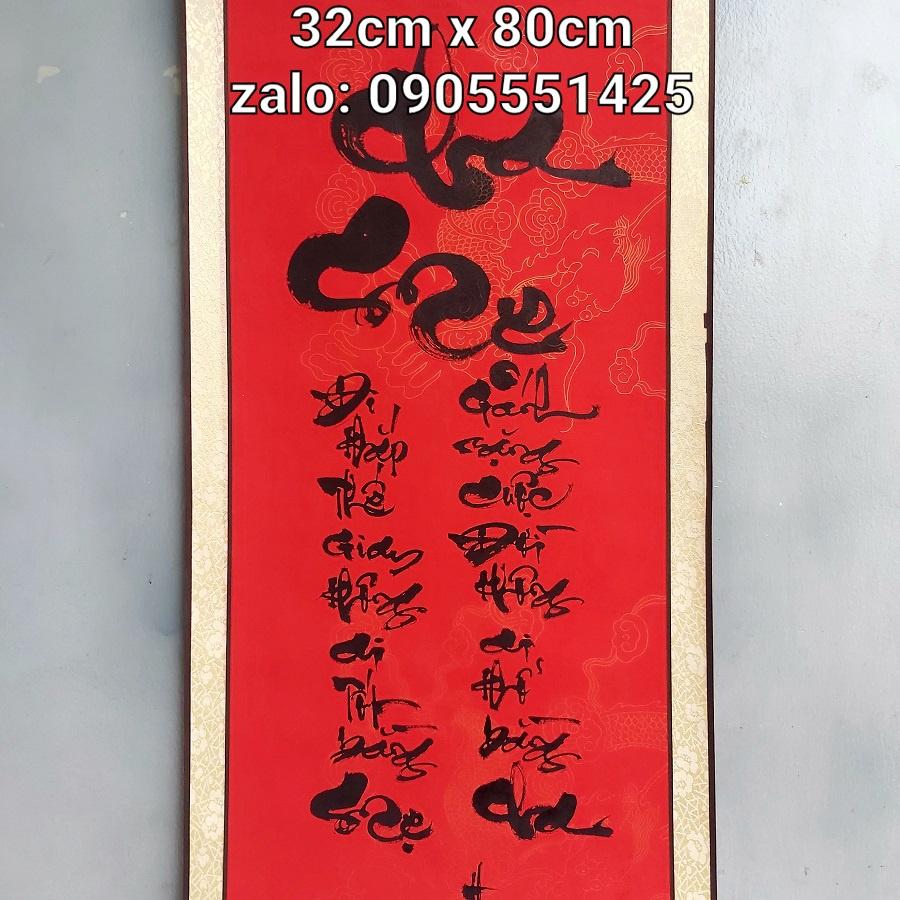 32cm x 80cm
zalo: 0905551425
Cha
Mẹ
Đi Khắp Thế Gian Không ai Tốt bằng Mẹ
Gánh nặng Cuộc Đời Không ai Khổ bằng Cha